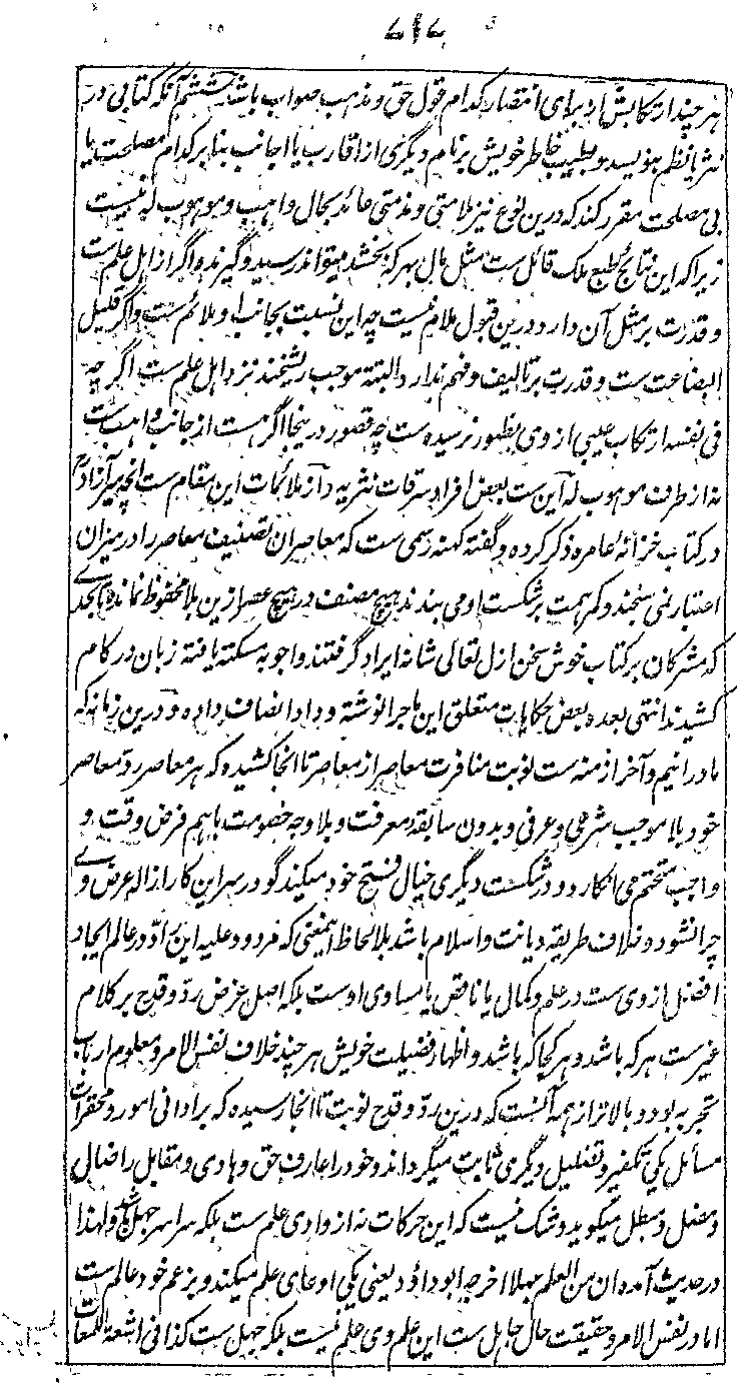 ۷۱۷
هر چند ارتکابش از برای انتصار کدام قول حق و مذهب صواب باشد ششم آنکه کتابی در
نثر یا نظم بنویسد و بطیب خاطر خویش بر نام دیگری از اقارب یا اجانب بنابر کدام مصلحت یا
بی مصلحت مقرر کند که درین نوع نیز ملامتی و مذمتی عائد بحال واهب و موهوب له نیست
زیرا که این نتائج طبع ملک قائل ست مثل مال بهر که بخشد میتواند رسید و گیرنده اگر از اهل علم ست
و قدرت بر مثل آن دارد درین قبول ملام نیست چه این نسبت بجانب او ملائم ست و اگر قلیل
البضاعت ست و قدرت بر تالیف و فهم ندارد البته موجب ریشخند نزد اهل علم ست اگر چه
فی نفسه ارتکاب عیبی از وی بظهور نرسیده ست چه قصور درینجا اگر هست از جانب واهب ست
نه از طرف موهوب له این ست بعض افراد سرقات نثریه و از ملائمات این مقام ست انچه میر آزاد رح
در کتاب خزانهٔ عامره ذکر کرده و گفته کهنه رسمی ست که معاصران تصنیف معاصر را در میزان
اعتبار نمی سنجند و کمر همت بر شکست او می بندند هیچ مصنف در هیچ عصر ازین بلا محفوظ نمانده تا بحدے
که مشرکان بر کتاب خوش سخن ازل تعالی شانه ایراد گرفتند و اجوبه مسکته یافته زبان در کام
کشیدند انتهی بعده بعض حکایات متعلق این ماجرا نوشته و داد انصاف داده و درین زمانه که
ما درانیم و آخر ازمنه ست نوبت منافرت معاصر از معاصر تا انجا کشیده که هر معاصر رد معاصر
خود بلا موجب شرعی و عرفی و بدون سابقهٔ معرفت و بلا وجه خصومت باهم فرض وقت و
واجب متحتم می انگارد و در شکست دیگری خیال فتح خود میکند گو در سر این کار ازاله عرض وے
چرا نشود و خلاف طریقه دیانت و اسلام باشد بلا لحاظ اینمعنی که مردود علیه این رادّ در عالم ایجاد
افضل از وی ست در علم و کمال یا ناقص یا مساوی اوست بلکه اصل غرض ردّ و قدح بر کلام
غیر ست هر که باشد و هر کجا که باشد و اظهار فضیلت خویش هر چند خلاف نفس الامر و معلوم ارباب
تجربه بود و بالاتر از همه آنست که درین ردّ و قدح نوبت تا انجا رسیده که بر ادانی امور و محقرات
مسائل یکی تکفیر و تضلیل دیگری ثابت میگرداند و خود را عارف حق و هادی و مقابل را ضال
و مضل و مبطل میگوید و شک نیست که این حرکات نه از وادی علم ست بلکه سراسر جهل باشد و لهذا
در حدیث آمده ان من العلم جهلا اخرجه ابو داؤد یعنی یکی ادعای علم میکند و بزعم خود عالم ست
اما در نفس الامر و حقیقت حال جاهل ست این علم وی علم نیست بلکه جهل ست کذا فی اشعة اللمعات